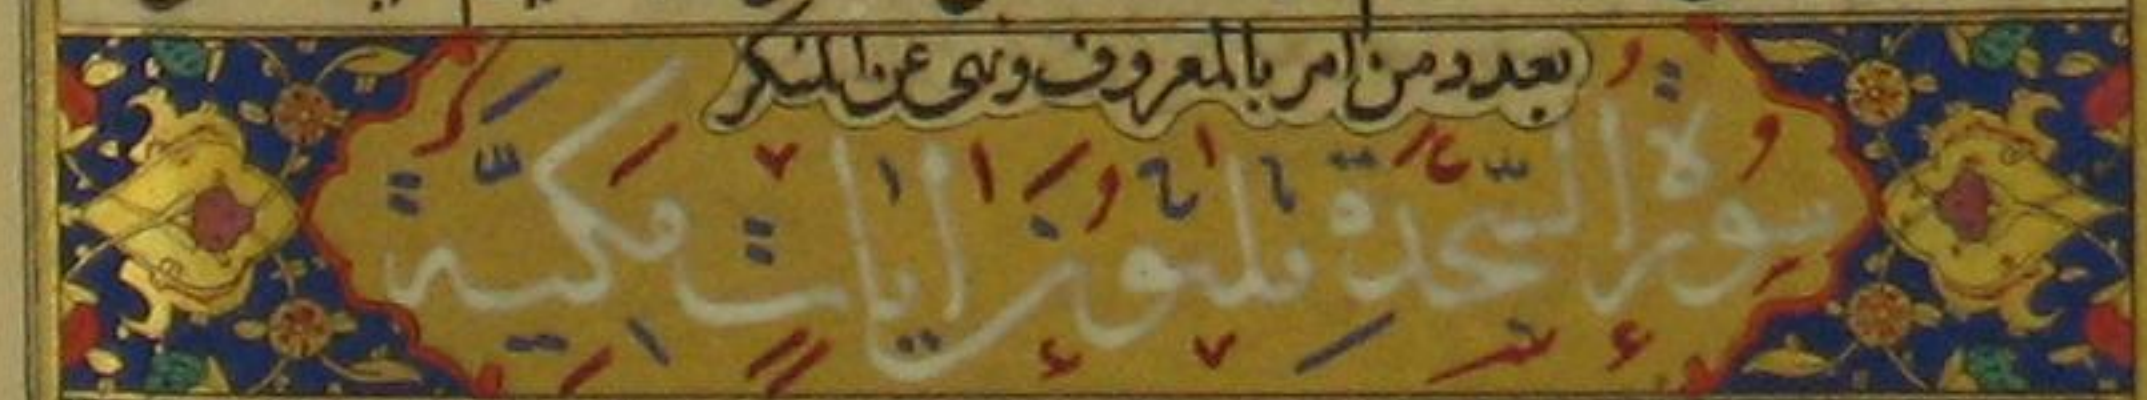 بعدد من امر بالمعروف ونهى عن المنكر
سورة السجدة ثلثون ايات مكية